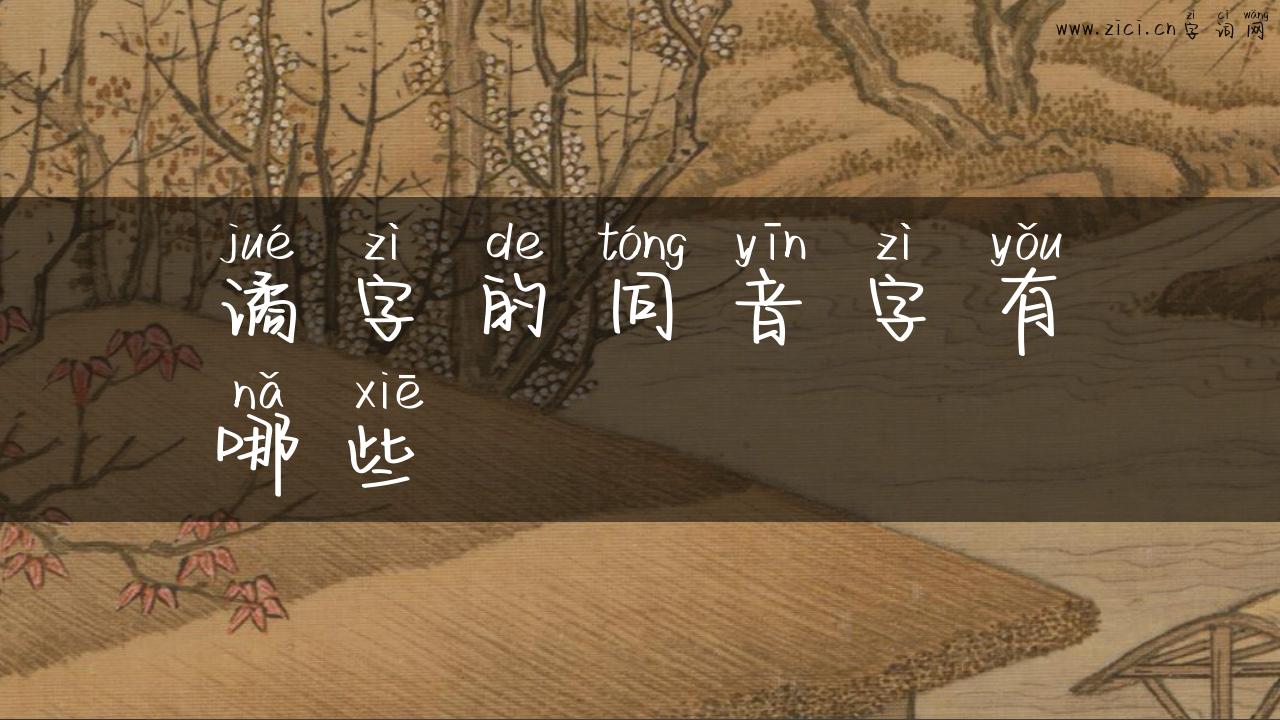 zì cí wǎng
www.zici.cn字词网
jué zì de tóng yīn zì yǒu
谲字的同音字有
nǎ xiē
哪些